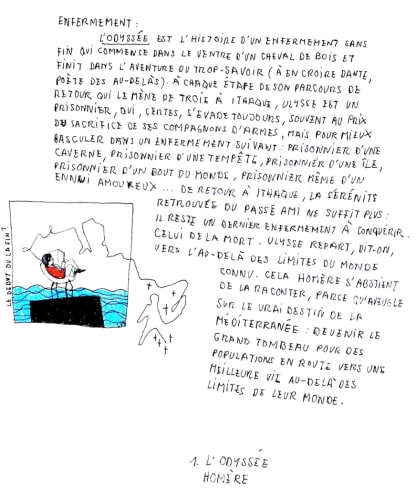 ENFERMEMENT :
L'ODYSSÉE EST L'HISTOIRE D'UN ENFERMEMENT SANS
FIN QUI COMMENCE DANS LE VENTRE D'UN CHEVAL DE BOIS ET
FINIT DANS L'AVENTURE DU TROP-SAVOIR (À EN CROIRE DANTE,
POÈTE DES AU-DELÀS). À CHAQUE ÉTAPE DE SON PARCOURS DE
RETOUR QUI LE MÈNE DE TROIE À ITHAQUE, ULYSSE EST UN
PRISONNIER, QUI, CERTES, S'ÉVADE TOUJOURS, SOUVENT AU PRIX
DU SACRIFICE DE SES COMPAGNONS D'ARMES, MAIS POUR MIEUX
BASCULER DANS UN ENFERMEMENT SUIVANT : PRISONNIER D'UNE
CAVERNE, PRISONNIER D'UNE TEMPÊTE, PRISONNIER D'UNE ÎLE,
PRISONNIER D'UN BOUT DU MONDE, PRISONNIER MÊME D'UN
ENNUI AMOUREUX ... DE RETOUR À ITHAQUE, LA SÉRÉNITÉ
RETROUVÉE DU PASSÉ AMI NE SUFFIT PLUS :
IL RESTE UN DERNIER ENFERMEMENT À CONQUÉRIR.
CELUI DE LA MORT. ULYSSE REPART, DIT-ON,
VERS L'AU-DELÀ DES LIMITES DU MONDE
CONNU. CELA HOMÈRE S'ABSTIENT
DE LA RACONTER, PARCE QU'AVEUGLE
SUR LE VRAI DESTIN DE LA
MÉDITERRANÉE : DEVENIR LE
GRAND TOMBEAU POUR DES
POPULATIONS EN ROUTE VERS UNE
MEILLEURE VIE AU-DELÀ DES
LIMITES DE LEUR MONDE.
LE DÉBUT OU LA FIN ?
1. L'ODYSSÉE
HOMÈRE